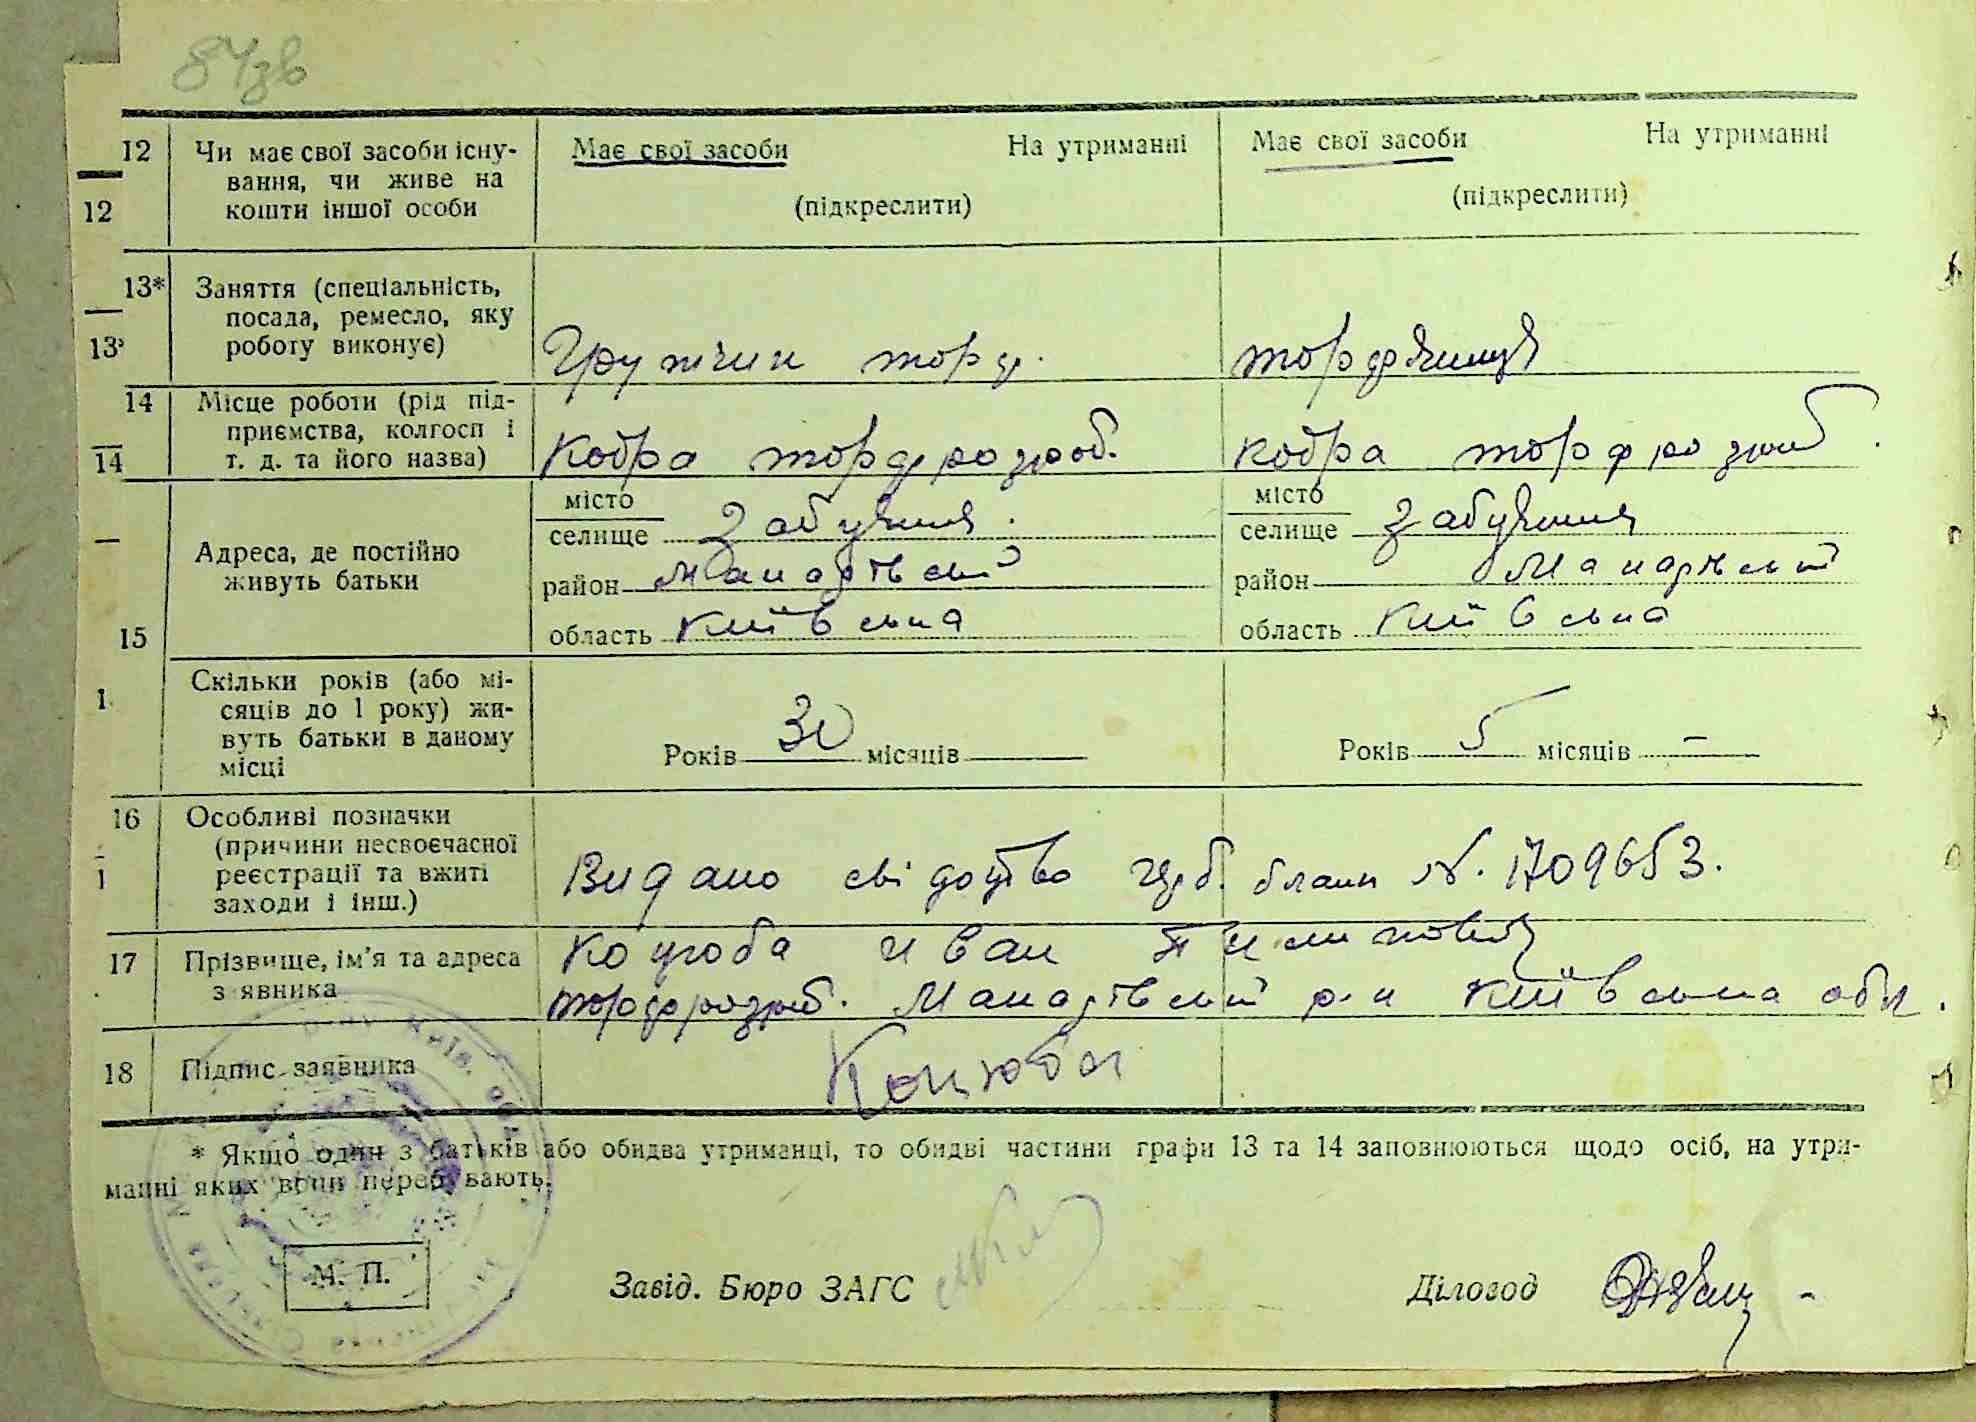 84зв
12 Чи має свої засоби існу- Має свої засоби На утриманні Має свої засоби На утриманні
вання, чи живе на
12 кошти іншої особи (підкреслити) (підкреслити)
13* Заняття (спеціальність,
посада, ремесло, яку
13 роботу виконує) Грузчик торф. торфяниця
14 Місце роботи (рід під-
приємства, колгосп і Кобра торфрозроб. кобра торфрозроб.
14 т. д. та його назва)
місто місто
селище Забуяння. селище забуяння
Адреса, де постійно
живуть батьки район Макарівський район Макарівський
15 область Київська область Київська
Скільки років (або мі-
сяців до 1 року) жи-
вуть батьки в даному Років 30 місяців Років 5 місяців –
місці
16 Особливі позначки
(причини несвоєчасної
реєстрації та вжиті Видано свідоцтво герб. бланк №. 1709653.
заходи і інш.)
17 Прізвище, ім'я та адреса Коцюба Иван
з явника торфрозроб. Макарівський р-н Київська обл.
18 Підпис заявника Коцюба
* Якщо один з батьків або обидва утриманці, то обидві частини графи 13 та 14 заповнюються щодо осіб, на утри-
манні яких вони перебувають.
М. П. Завід. Бюро ЗАГС Діловод